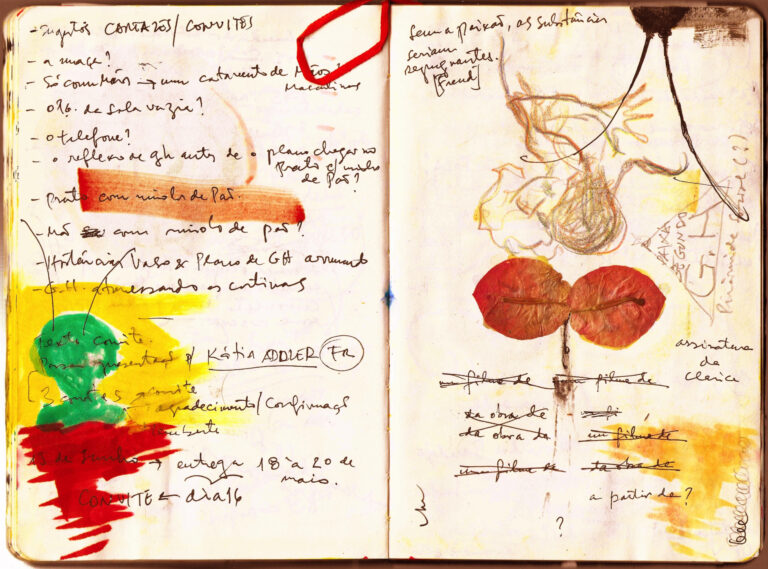 - sugestões CARTAZES/CONVITES
- a imagem?
- Só com Mãos → um catavento de Mãos?
- a da sala vazia?
- o telefone?
- o reflexo de gh antes de o plano chegar no
prato c/ miolo
de Pão?
- prato com miolo de Pão.
- Mão com miolo de pão?
- Hortências Vaso & Plano de GH arrumando
- G.H. atravessando as cortinas
texto convite.
apresentação p/ Kátia ADDLER FR
3
agradecimento/Confirmaçã
de Junho → entrega 18 à 20 de
maio.
CONVITE ← dia 16
Sem a paixão, as substâncias
seriam
repugnantes.
[Freud]
SEGUNDO
G.H.
(?)
assinatura
de
clarice
um filme de um filme de
da obra de
da obra de um filme de
um filme de da obra de
a partir de?
?